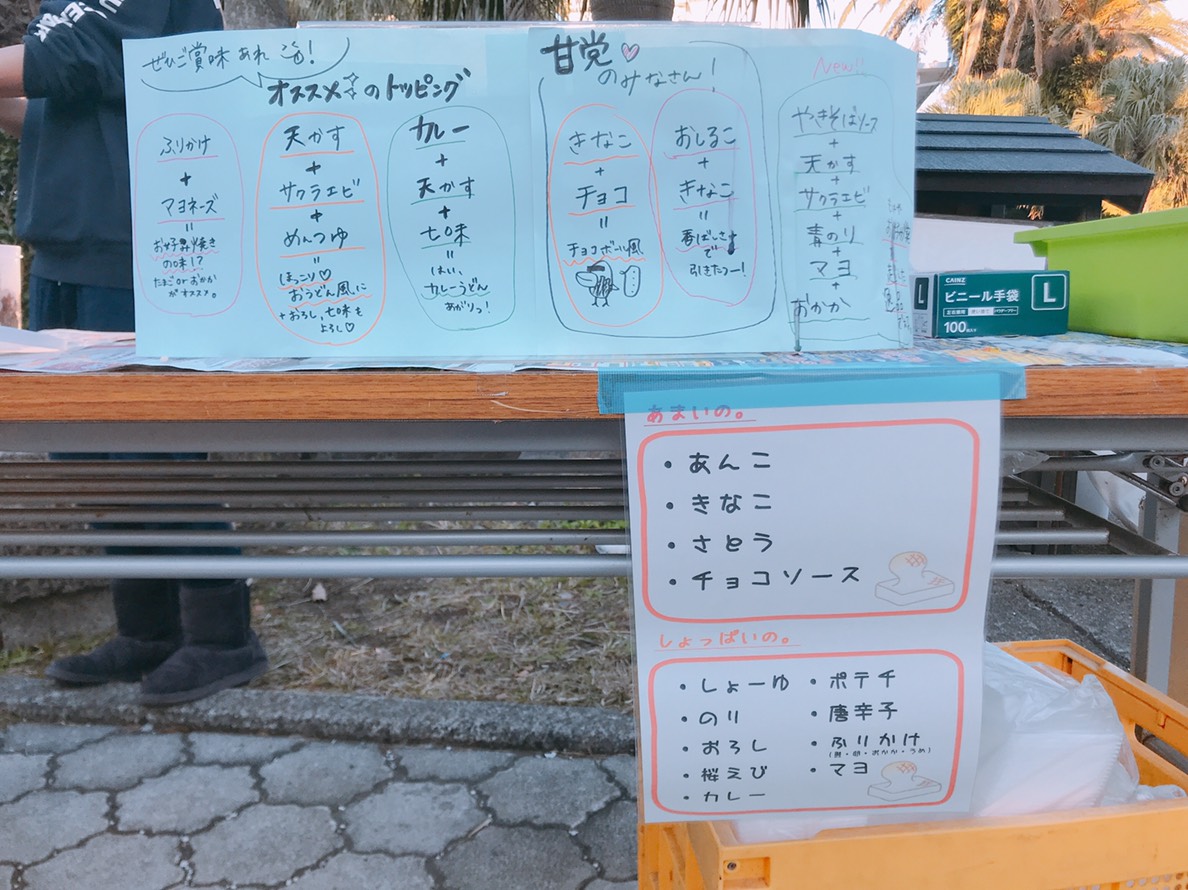 ぜひご賞味あれ
オススメのトッピング
ふりかけ
+
マヨネーズ
=
お好み焼き
の味!?
たまごorおかか
がオススメ。
天かす
+
サクラエビ
+
めんつゆ
=
ほっこり♡
おうどん風に
+おろし、七味も
よろし♡
カレー
+
天かす
+
七味
=
はい、
カレーうどん
あがりっ!
甘党♡
のみなさん!
きなこ
+
チョコ
=
チョコボール風
おしるこ
+
きなこ
=
香ばしさ
で
引きたつー!
New!!
やきそばソース
+
天かす
+
サクラエビ
+
青のり
+
マヨ
+
おかか
CAINZ
ビニール手袋
L
L
100
あまいの。
・あんこ
・きなこ
・さとう
・チョコソース
しょっぱいの。
・しょーゆ
・のり
・おろし
・桜えび
・カレー
・ポテチ
・唐辛子
・ふりかけ
・マヨ